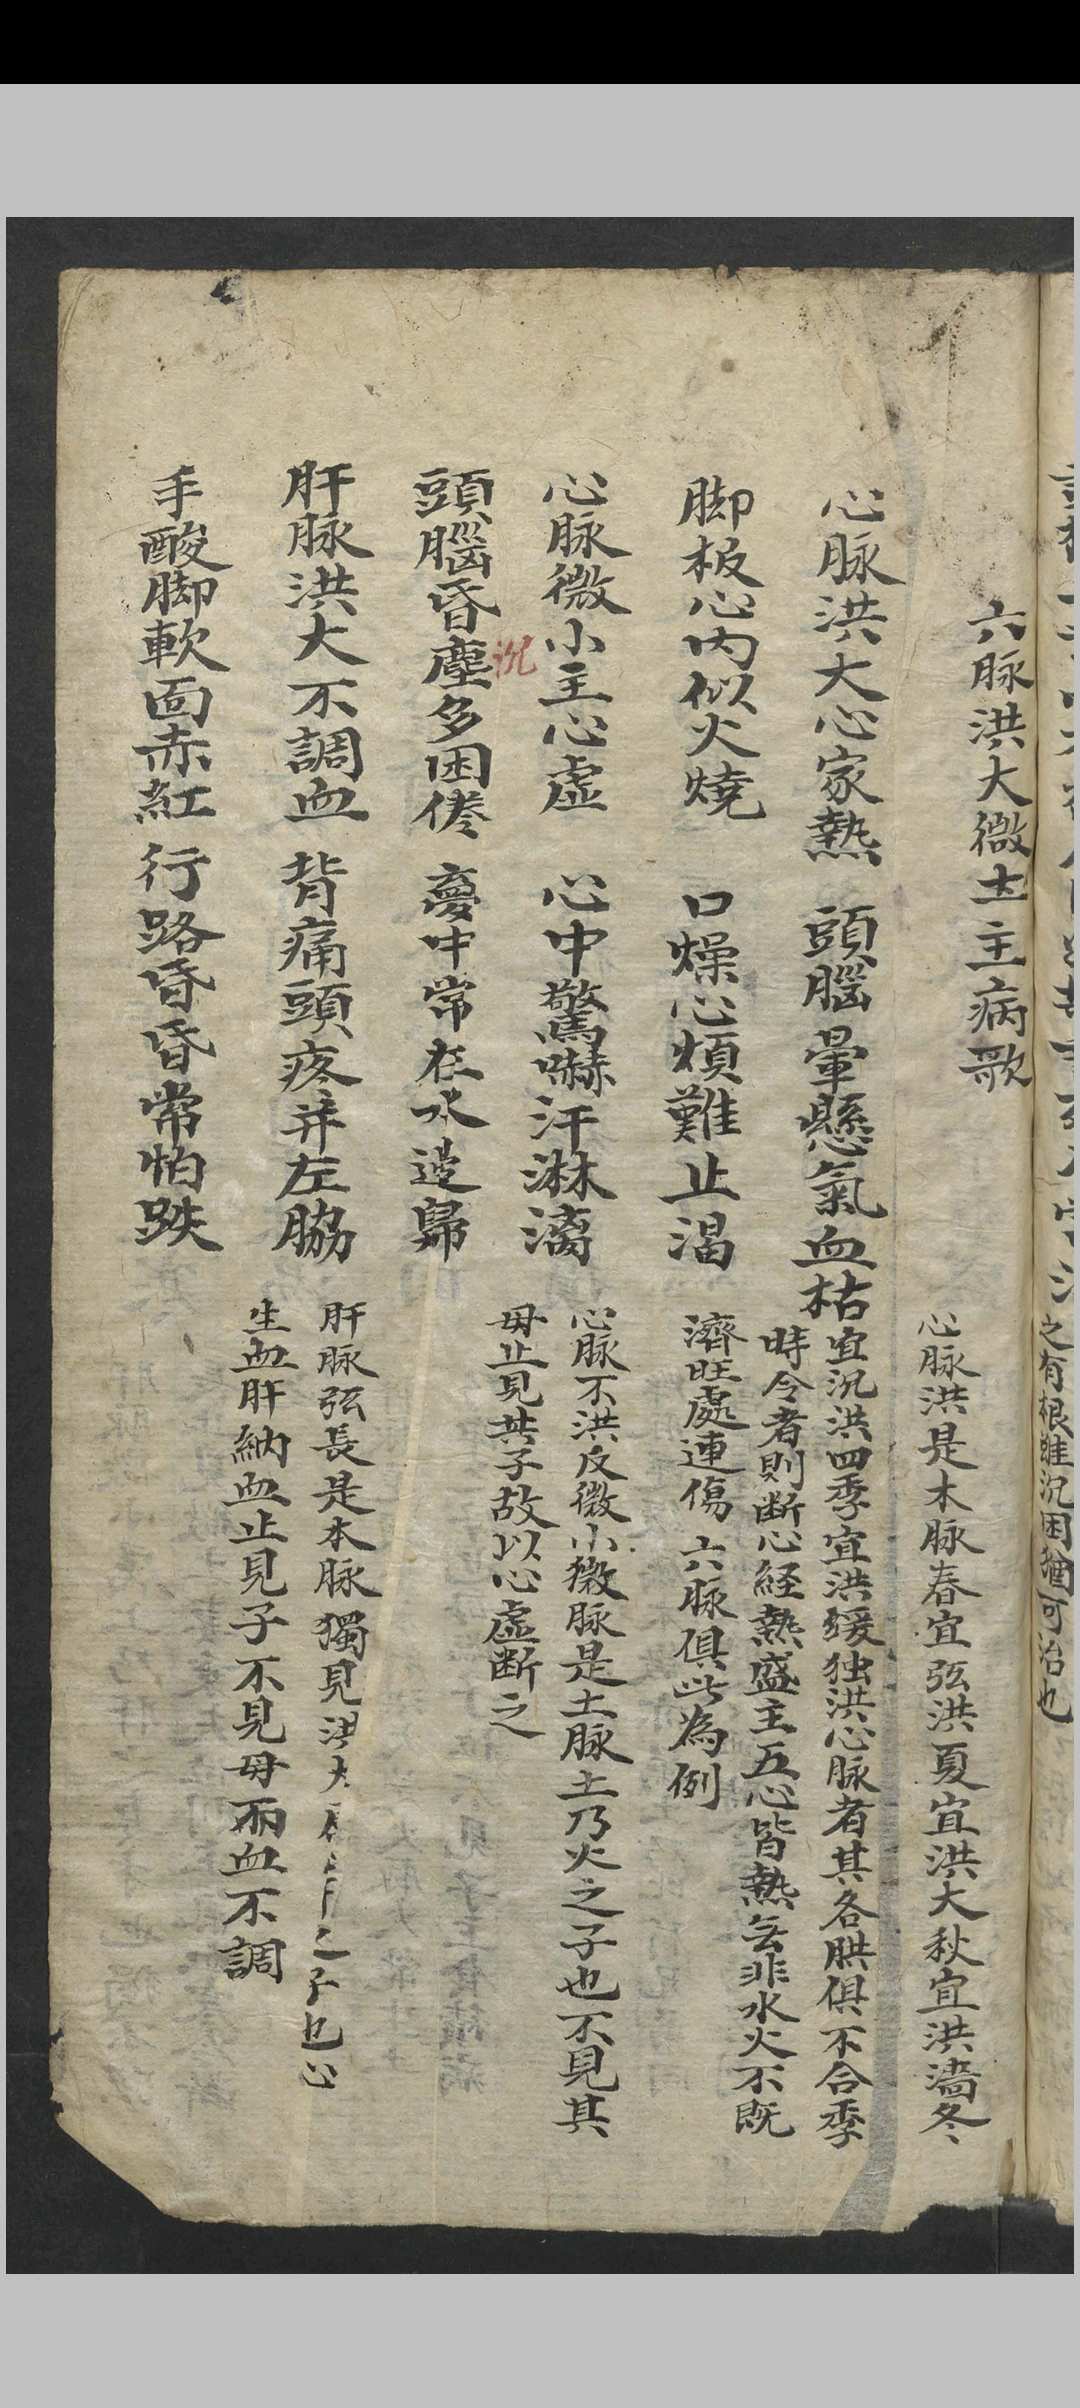 之有根雖沉困猶可治也
六脉洪大微主病歌
心脉洪大心家熱 頭腦暈懸氣血枯
心脉洪是木脉春宜弦洪夏宜洪大秋宜洪濇冬
宜沉洪四季宜洪缓独洪心脉者其各肤俱不合季
時令者則断心経熱盛主五心皆熱岂非水火不既
濟旺處連傷 六脉俱此為例
脚板心内似火燒 口燥心煩難止渴
心脉微小主心虚 心中驚嚇汗淋漓
心脉不洪反微小微脉是土脉土乃火之子也不見其
毋止見其子故以心虚断之
沉
頭腦昏塵多困倦 夢中常在水邊歸
肝脉洪大不調血 背痛頭疼并左脇
肝脉弦長是本脉獨見洪大 之子也心
生血肝納血止見子不見毋而血不調
手酸脚軟面赤紅 行路昏昏常怕跌